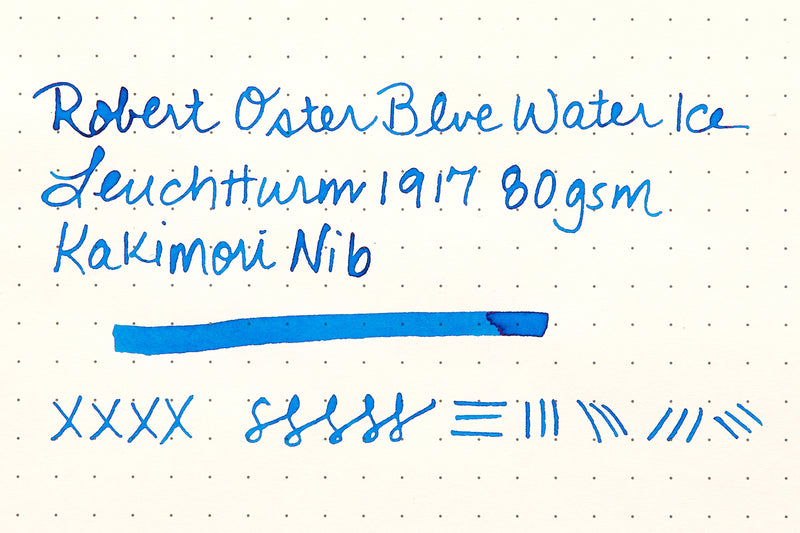 Robert Oster Blue Water Ice
Leuchtturm 1917 80gsm
Kakimori Nib
XXXX